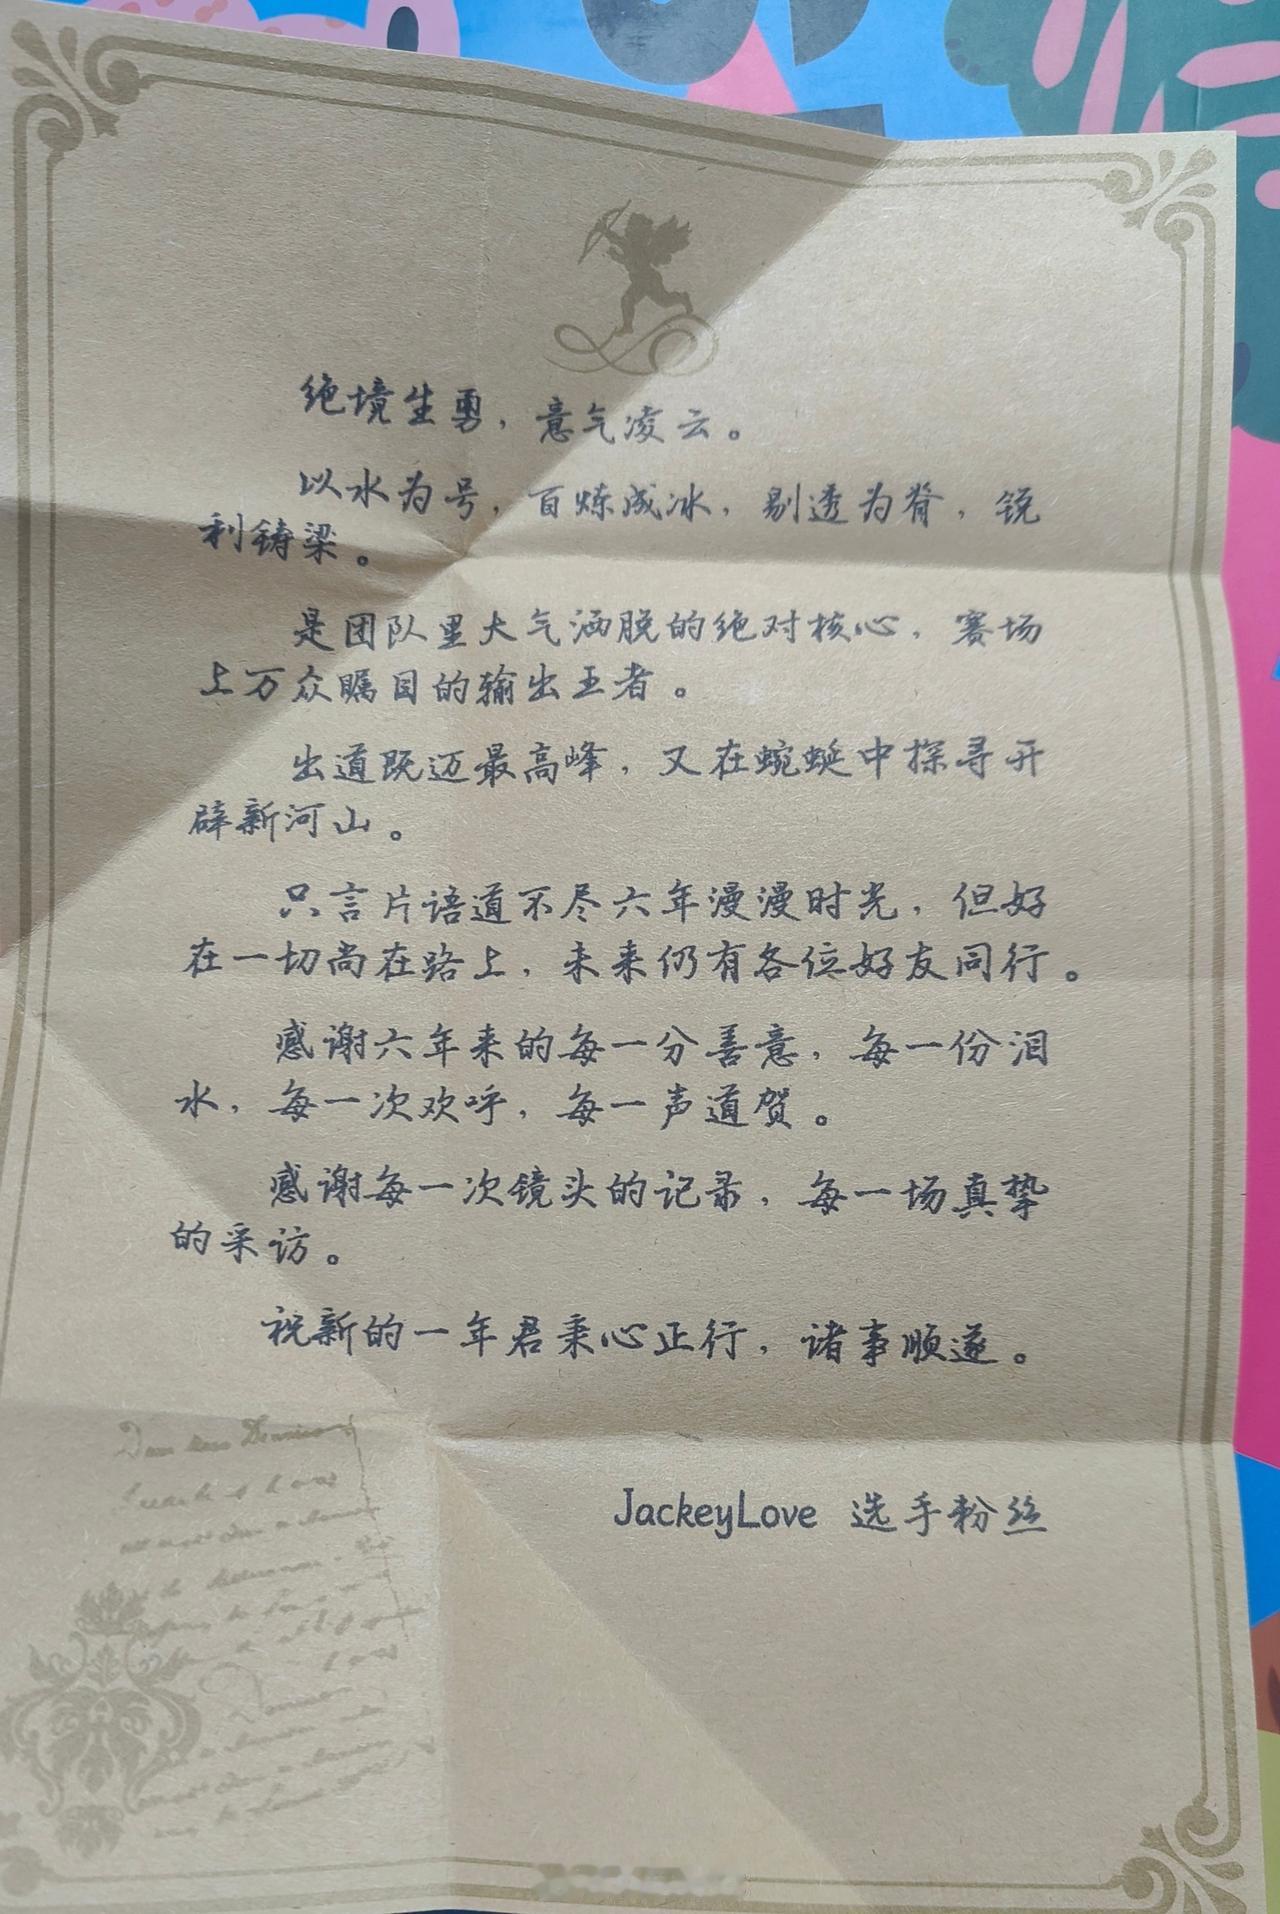 绝境生勇，意气凌云。
以水为号，百炼成冰，剔透为脊，锐
利铸梁。
是团队里大气洒脱的绝对核心，赛场
上万众瞩目的输出王者。
出道既迈最高峰，又在蜿蜒中探寻开
辟新河山。
只言片语道不尽六年漫漫时光，但好
在一切尚在路上，未来仍有各位好友同行。
感谢六年来的每一分善意，每一份泪
水，每一次欢呼，每一声道贺。
感谢每一次镜头的记录，每一场真挚
的采访。
祝新的一年君秉心正行，诸事顺遂。
JackeyLove 选手粉丝